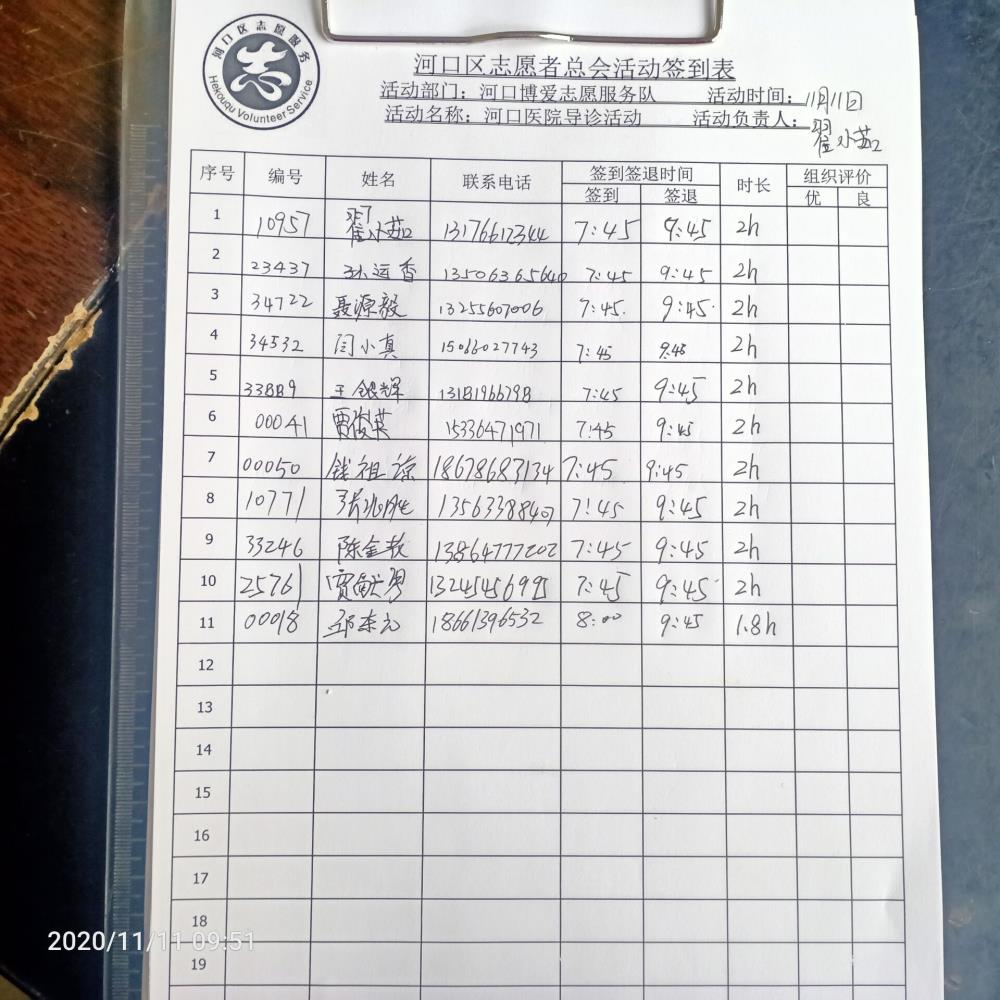 河口区志愿服务
Hekouqu Volunteer Service
河口区志愿者总会活动签到表
活动部门：河口博爱志愿服务队 活动时间：11月11日
活动名称：河口医院导诊活动 活动负责人：翟小茹
序号 编号 姓名 联系电话 签到签退时间 时长 组织评价
签到 签退 优 良
1 10957 翟小茹 13176612344 7:45 9:45 2h
2 23437 孙运香 13506365640 7:45 9:45 2h
3 34722 聂源毅 13255607006 7:45 9:45 2h
4 34532 闫小真 15066027743 7:45 9:45 2h
5 王银辉 7:45 9:45 2h
6 00041 贾俊英 15336471971 7:45 9:45 2h
7 00050 钱祖谅 18678683134 7:45 9:45 2h
8 10771 13563388407 7:45 9:45 2h
9 33246 陈金牧 13864777202 7:45 9:45 2h
10 25761 13245456995 7:45 9:45 2h
11 00018 18661396532 8:00 9:45 1.8h
12
13
14
15
16
17
18
19
2020/11/11 09:51